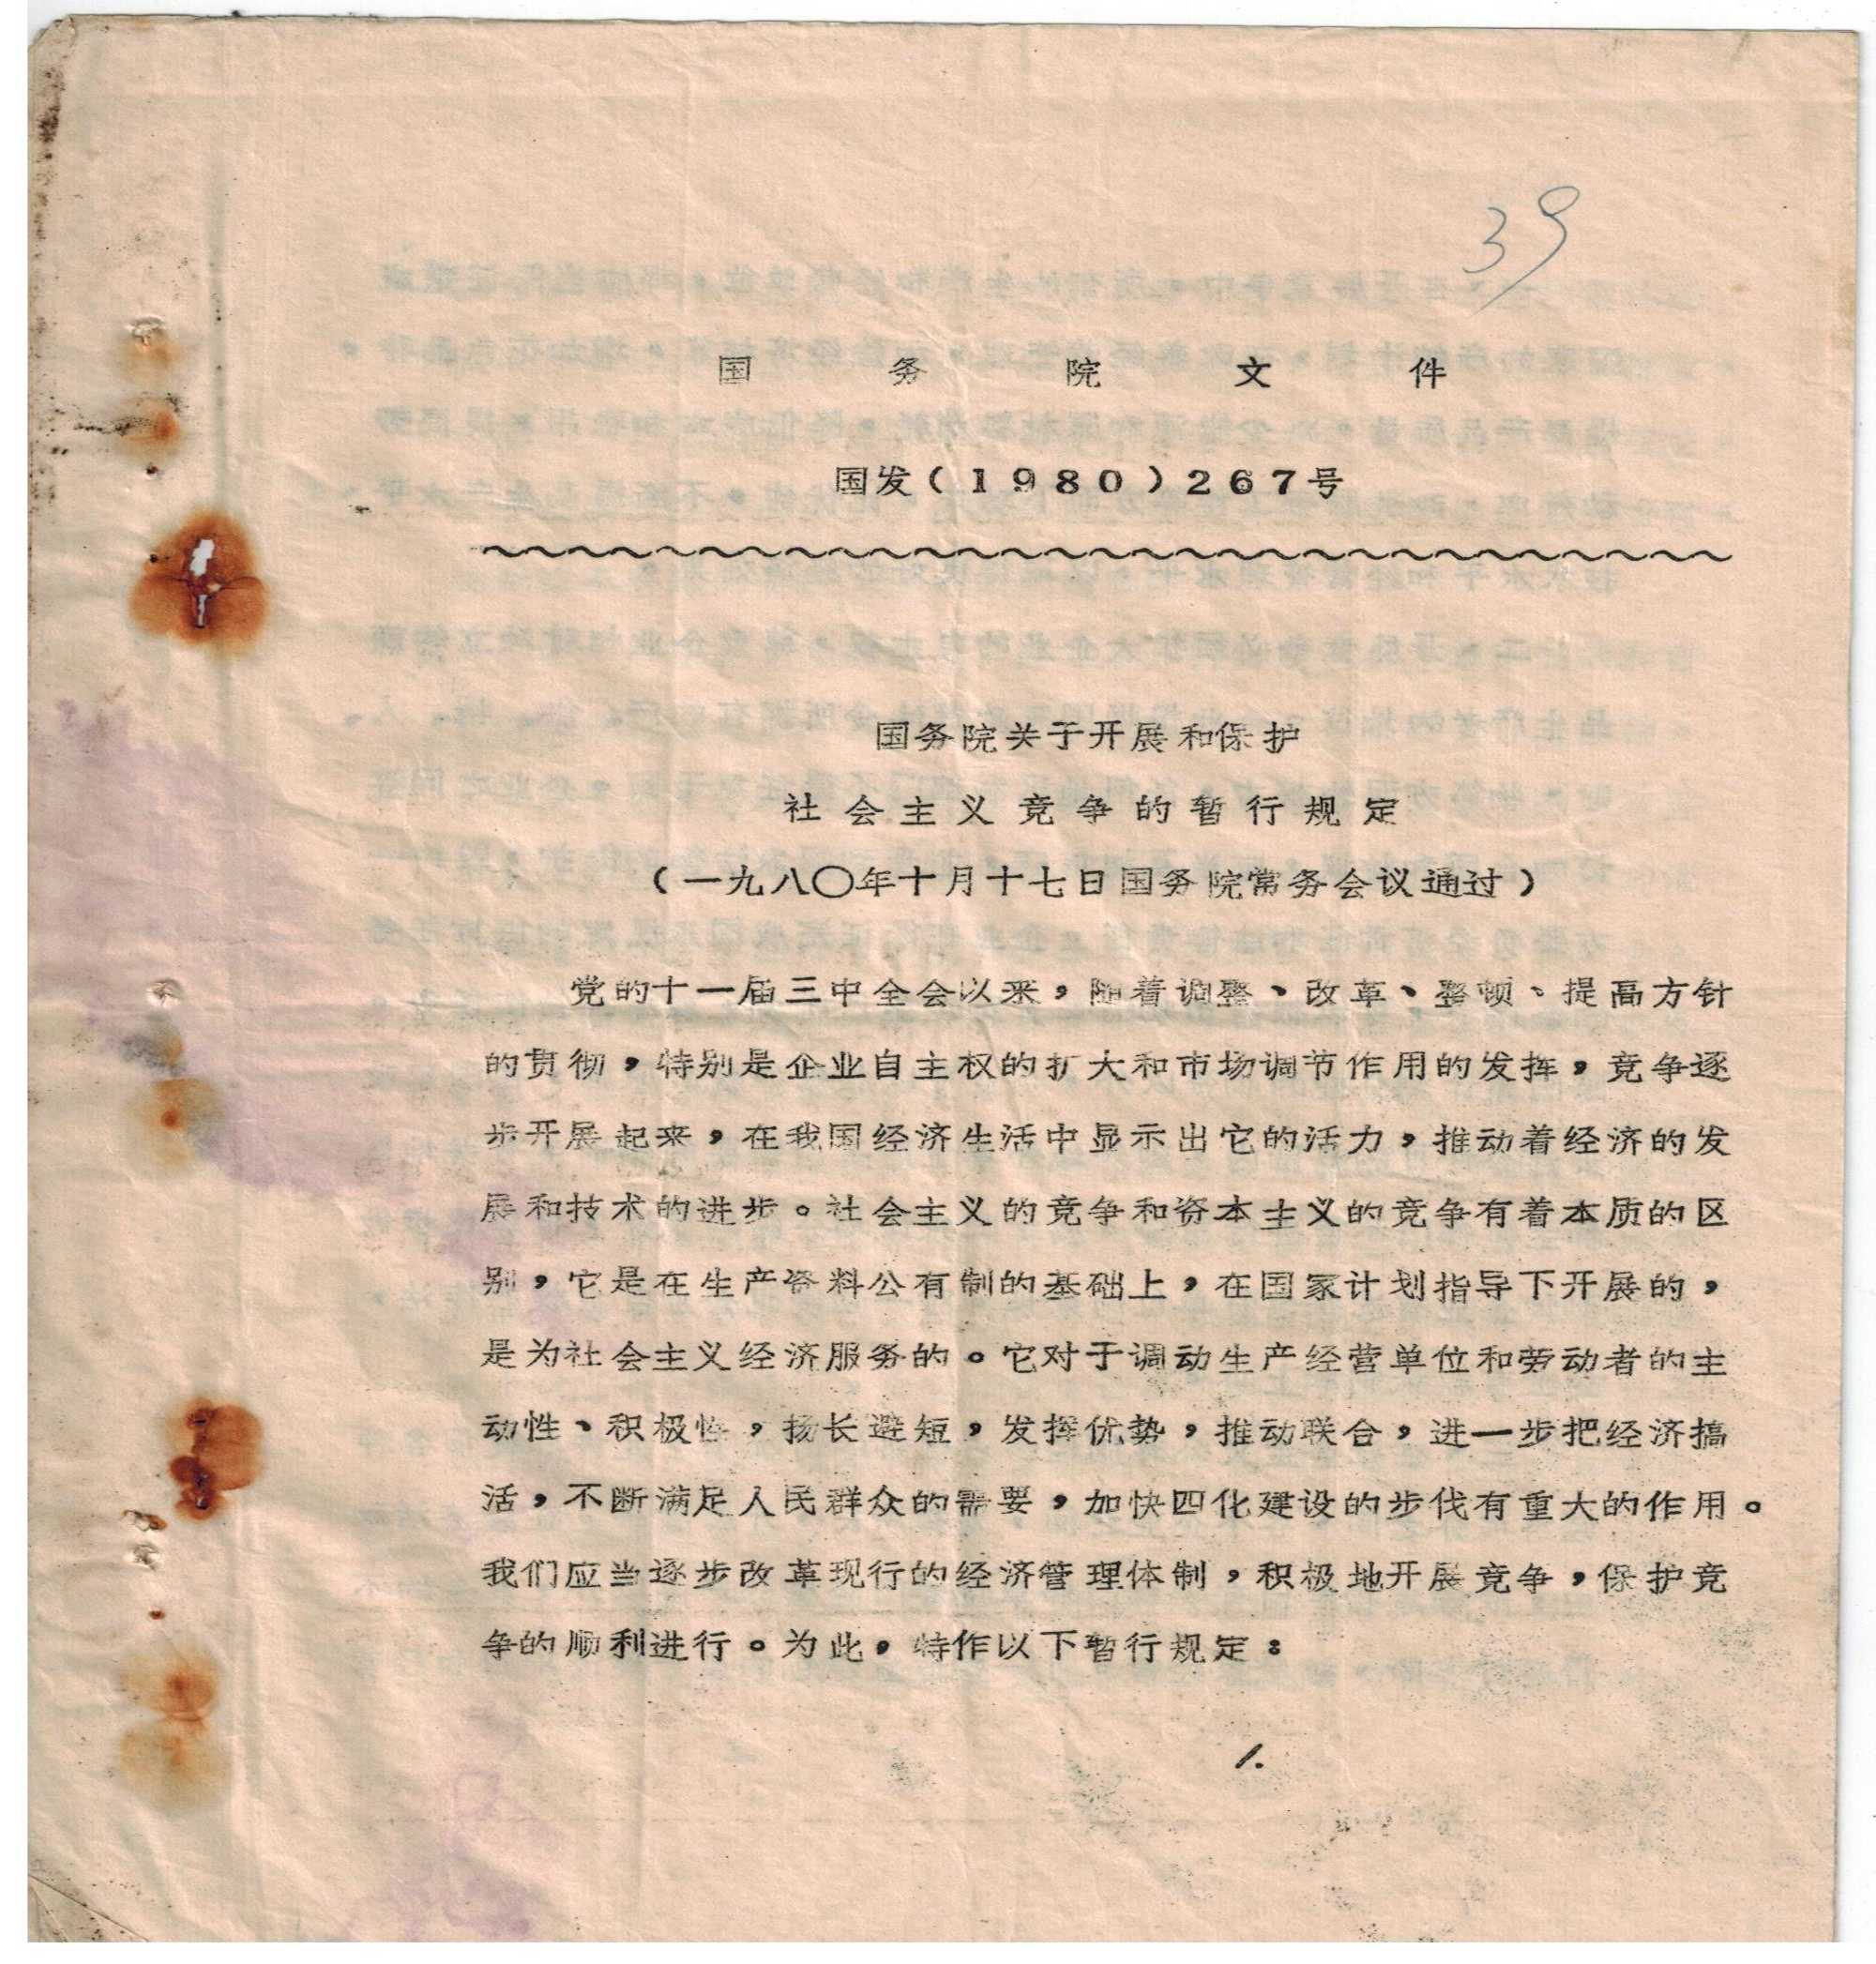 39
国务院文件
国发（1980）267号
国务院关于开展和保护
社会主义竞争的暂行规定
（一九八〇年十月十七日国务院常务会议通过）
党的十一届三中全会以来，随着调整、改革、整顿、提高方针
的贯彻，特别是企业自主权的扩大和市场调节作用的发挥，竞争逐
步开展起来，在我国经济生活中显示出它的活力，推动着经济的发
展和技术的进步。社会主义的竞争和资本主义的竞争有着本质的区
别，它是在生产资料公有制的基础上，在国家计划指导下开展的，
是为社会主义经济服务的。它对于调动生产经营单位和劳动者的主
动性、积极性，扬长避短，发挥优势，推动联合，进一步把经济搞
活，不断满足人民群众的需要，加快四化建设的步伐有重大的作用。
我们应当逐步改革现行的经济管理体制，积极地开展竞争，保护竞
争的顺利进行。为此，特作以下暂行规定：
1.